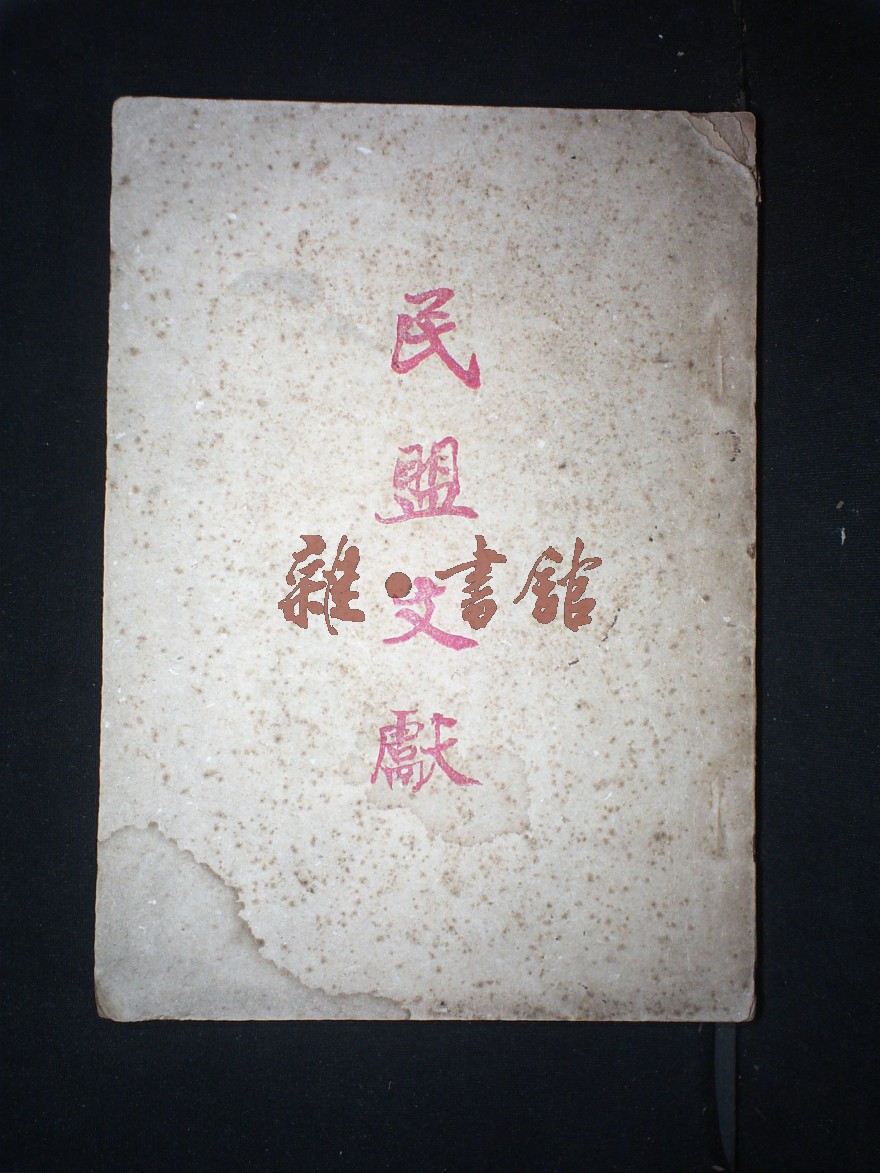 民盟文獻
雜·書館